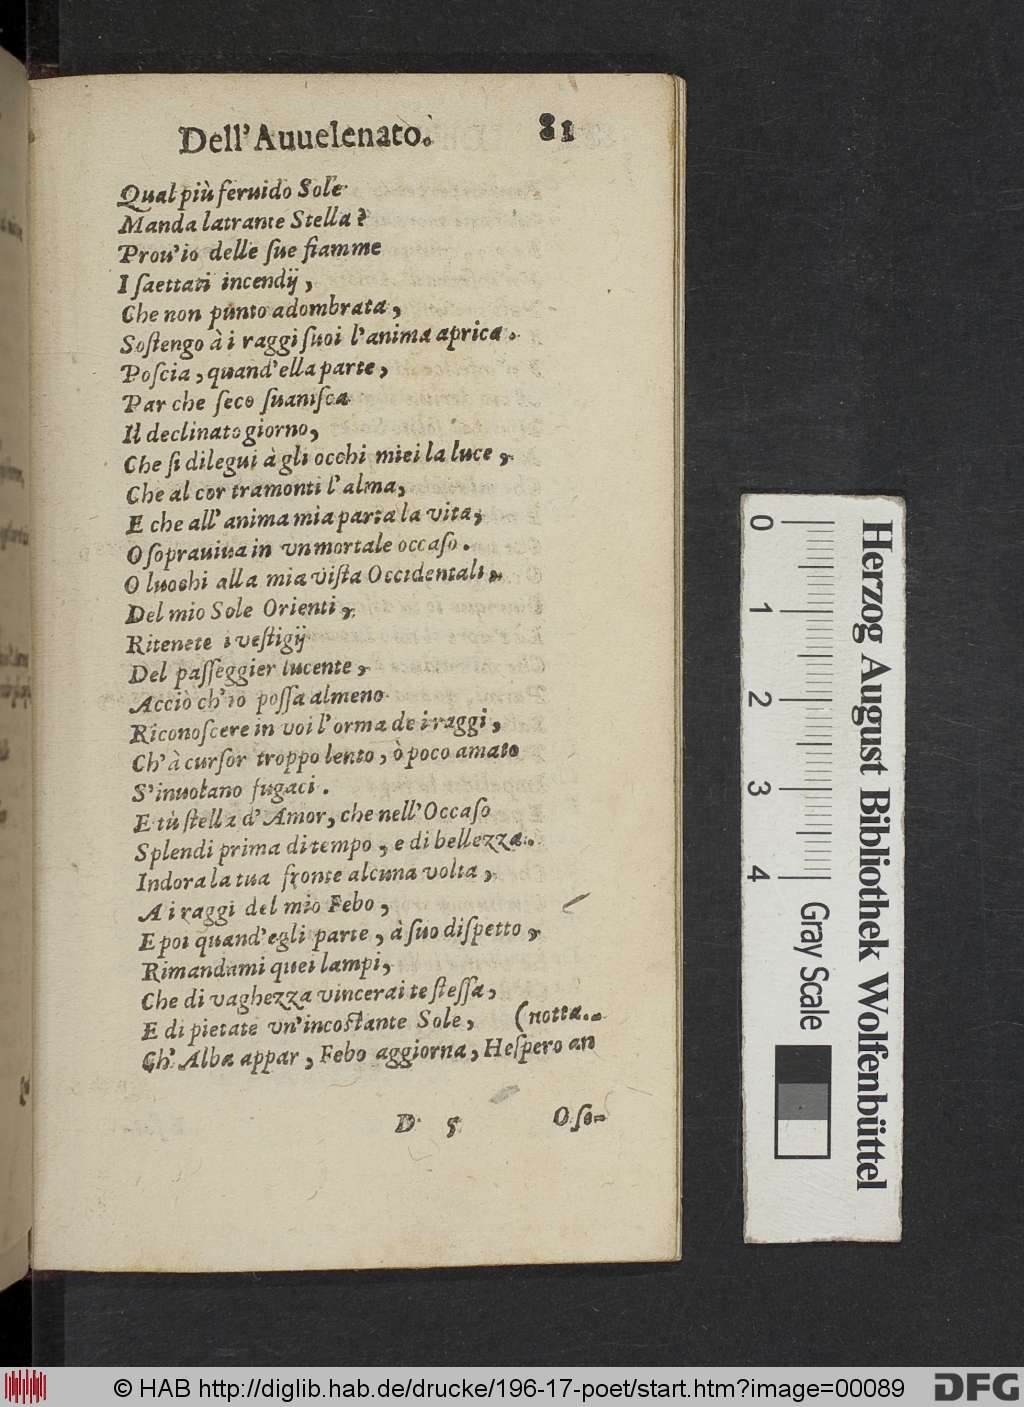 Dell'Auuelenato. 81
Qual più feruido Sole
Manda latrante Stella?
Prou'io delle ſue fiamme
I ſaettati incendij,
Che non punto adombrata,
Soſtengo à i raggi ſuoi l'anima aprica.
Poſcia, quand'ella parte,
Par che ſeco ſuaniſca
Il declinato giorno,
Che ſi dilegui à gli occhi miei la luce,
Che al cor tramonti l'alma,
E che all'anima mia parta la vita,
O soprauiua in vn mortale occaſo.
O luoghi alla mia viſta Occidentali,
Del mio Sole Orienti,
Ritenete i veſtigij
Del paſſeggier lucente,
Acciò ch'io poſſa almeno
Riconoſcere in voi l'orma de i raggi,
Ch'à curſor troppo lento, ò poco amato
S'inuolano fugaci.
E tù ſtella d'Amor, che nell'Occaſo
Splendi prima di tempo, e di bellezza.
Indora la tua fronte alcuna volta,
A i raggi del mio Febo,
E poi quand'egli parte, à ſuo diſpetto,
Rimandami quei lampi,
Che di vaghezza vincerai te ſteſſa,
E di pietate vn'incoſtante Sole, (notta.
Ch'Alba appar, Febo aggiorna, Heſpero an
D 5 O ſo-
0 1 2 3 4
Gray Scale
Herzog August Bibliothek Wolfenbüttel
© HAB http://diglib.hab.de/drucke/196-17-poet/start.htm?image=00089
DFG